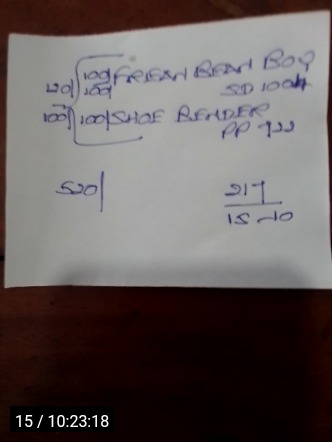 120 100/ FREAN BEAN BOY
100/ SD 1004
100/ 100/ SHOE BENDER
PP 722
520/ 217
15 10
15 / 10:23:18